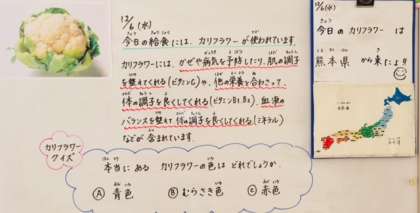 12/6(水)
今日の給食には、カリフラワーが使われています。
カリフラワーには、かぜや病気を予防したり、肌の調子
を整えてくれる(ビタミンC)や、他の栄養と合わさって、
体の調子を良くしてくれる(ビタミンB1 B2)、血液の
バランスを整えて体の調子を良くしてくれる(ミネラル)
などが含まれています。
カリフラワー
クイズ
本当にある カリフラワーの色は どれでしょうか。
Ⓐ 青色 Ⓑ むらさき色 Ⓒ 赤色
12/6(水)
今日の カリフラワー は
熊本県 から来たよ!!